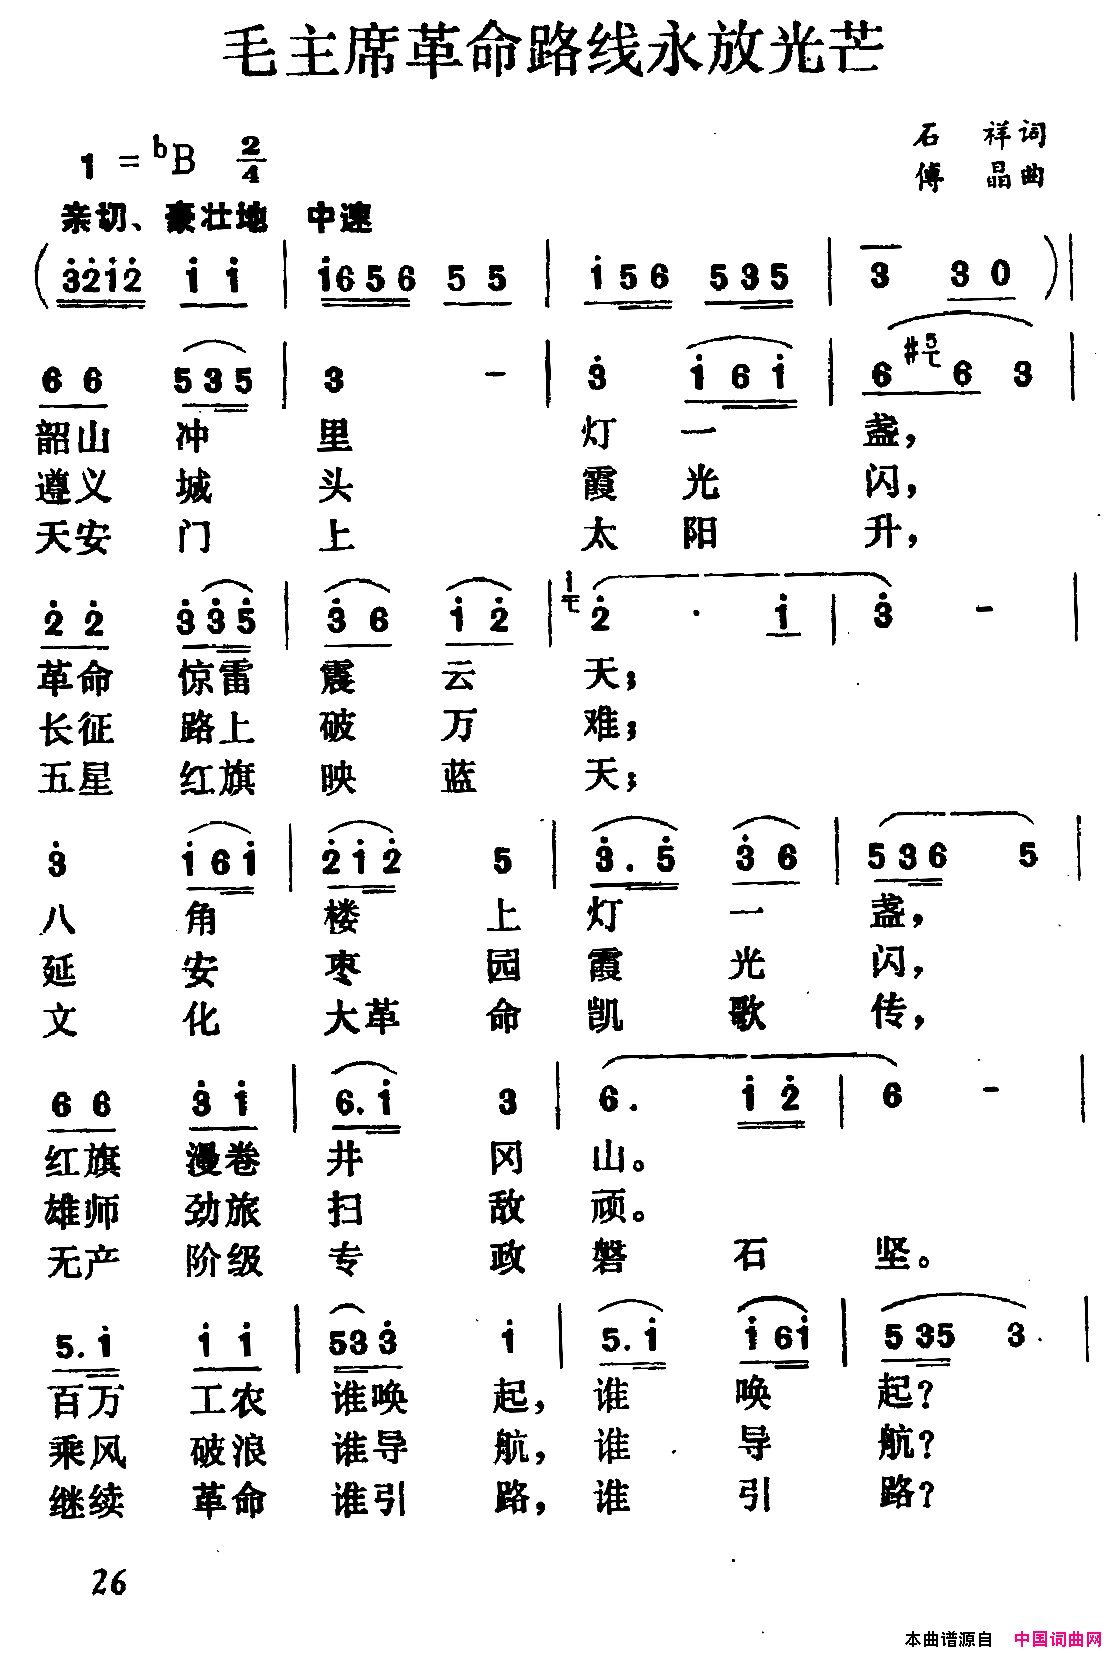 毛主席革命路线永放光芒
1 = ᵇB 2/4
石 祥词
傅 晶曲
亲切、豪壮地 中速
(3̇2̇1̇2̇ 1̇ 1̇ | 1̇656 5 5 | 1̇56 535 | 3 3 0 )|
6 6 535 | 3 - | 3̇ 1̇61̇ | 6 #5 6 3 |
韶山 冲 里 灯 一 盏,
遵义 城 头 霞 光 闪,
天安 门 上 太 阳 升,
2̇ 2̇ 3̇3̇5̇ | 3̇ 6 1̇ 2̇ | 1̇ 2̇ · 1̇ | 3̇ - |
革命 惊雷 震 云 天;
长征 路上 破 万 难;
五星 红旗 映 蓝 天;
3̇ 1̇61̇ | 2̇1̇2̇ 5 | 3̇. 5̇ 3̇ 6 | 536 5 |
八 角 楼 上 灯 一 盏,
延 安 枣 园 霞 光 闪,
文 化 大革 命 凯 歌 传,
6 6 3̇ 1̇ | 6. 1̇ 3 | 6. 1̇ 2̇ | 6 - |
红旗 漫卷 井 冈 山。
雄师 劲旅 扫 敌 顽。
无产 阶级 专 政 磐 石 坚。
5. 1̇ 1̇ 1̇ | 533̇ 1̇ | 5. 1̇ 1̇61̇ | 535 3 |
百万 工农 谁唤 起, 谁 唤 起?
乘风 破浪 谁导 航, 谁 导 航?
继续 革命 谁引 路, 谁 引 路?
26
本曲谱源自 中国词曲网